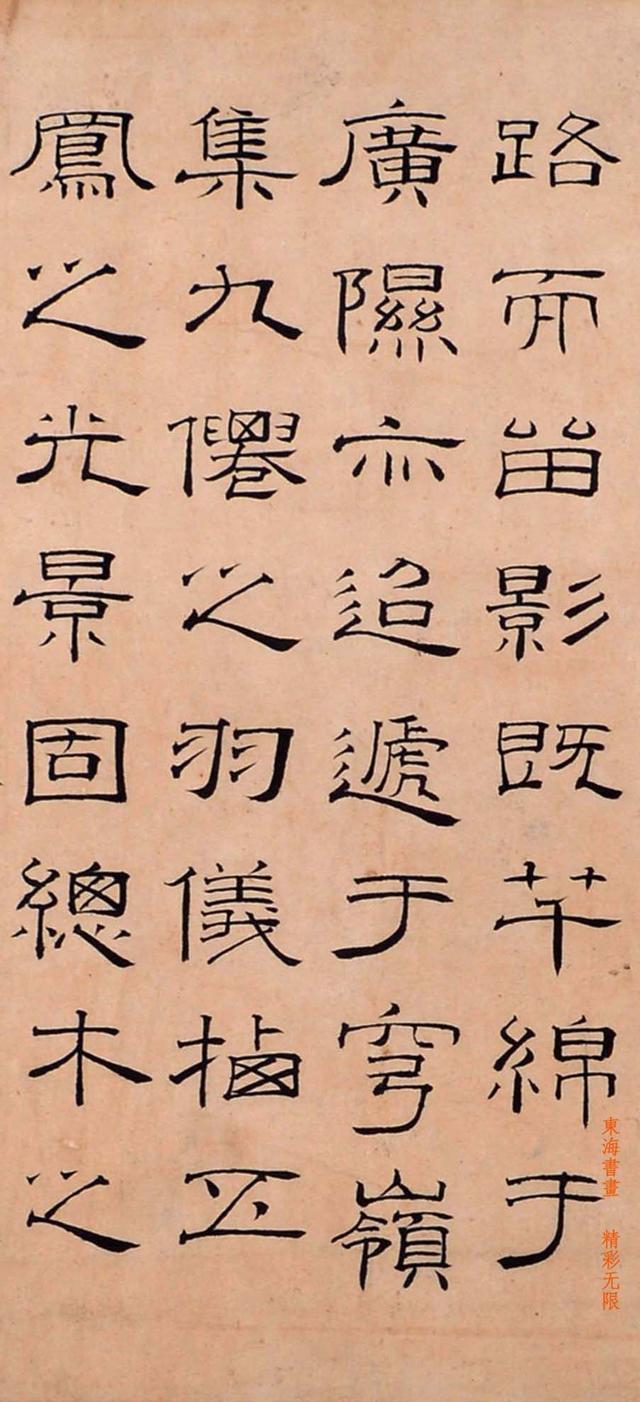 路而留影既芊綿于
廣隰亦迢遞于穹嶺
集九僊之羽儀栖五
鳳之光景固總木之
東海書畫 精彩无限